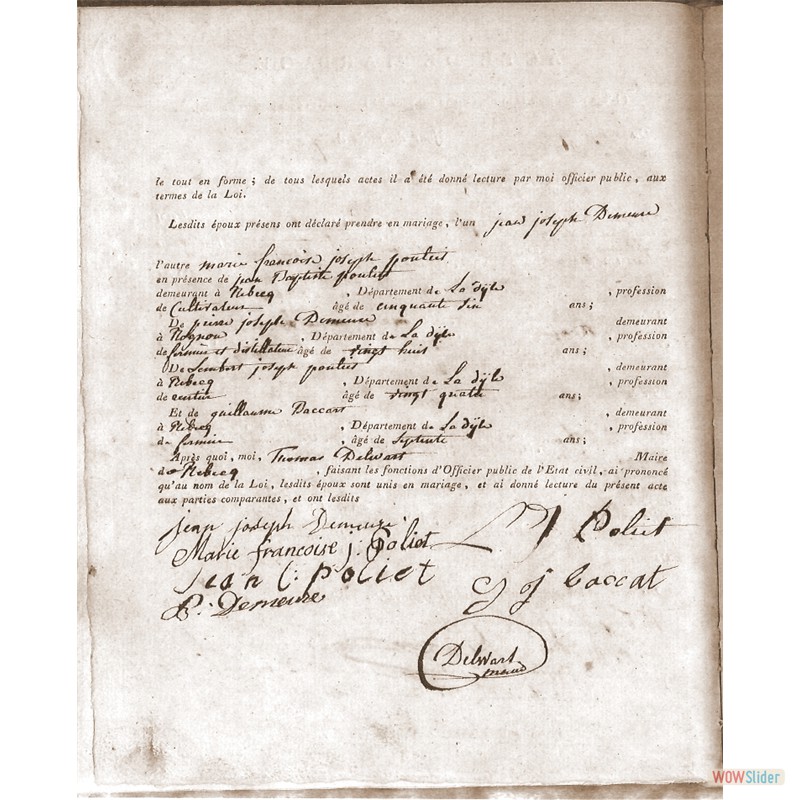 le tout en forme ; de tous lesquels actes il a été donné lecture par moi officier public, aux
termes de la Loi.
Lesdits époux présens ont déclaré prendre en mariage, l'un jean joseph Demeure
l'autre marie francoise joseph pouliet
en présence de jean Baptiste pouliet
demeurant à Rebecq , Département de La dyle , profession
de Cultivateur âgé de cinquante six ans ;
De pierre joseph Demeure demeurant
à , Département de La dyle , profession
de fermier et distillateur âgé de vingt huit ans ;
De Lambert joseph pouliet , demeurant
à Rebecq , Département de La dyle , profession
de âgé de vingt quatre ans;
Et de guillaume Baccart , demeurant
à Rebecq , Département de La dyle , profession
de fermier , âgé de Septente ans ;
Après quoi, moi, Thomas Delwart Maire
de Rebecq , faisant les fonctions d'Officier public de l'Etat civil, ai prononcé
qu'au nom de la Loi, lesdits époux sont unis en mariage, et ai donné lecture du présent acte
aux parties comparantes, et ont lesdits
jean joseph Demeure
Marie francoise j: Poliet
Poliet
jean C: poliet
Baccat
P: Demeure
Delwart
maire
WOWSlider